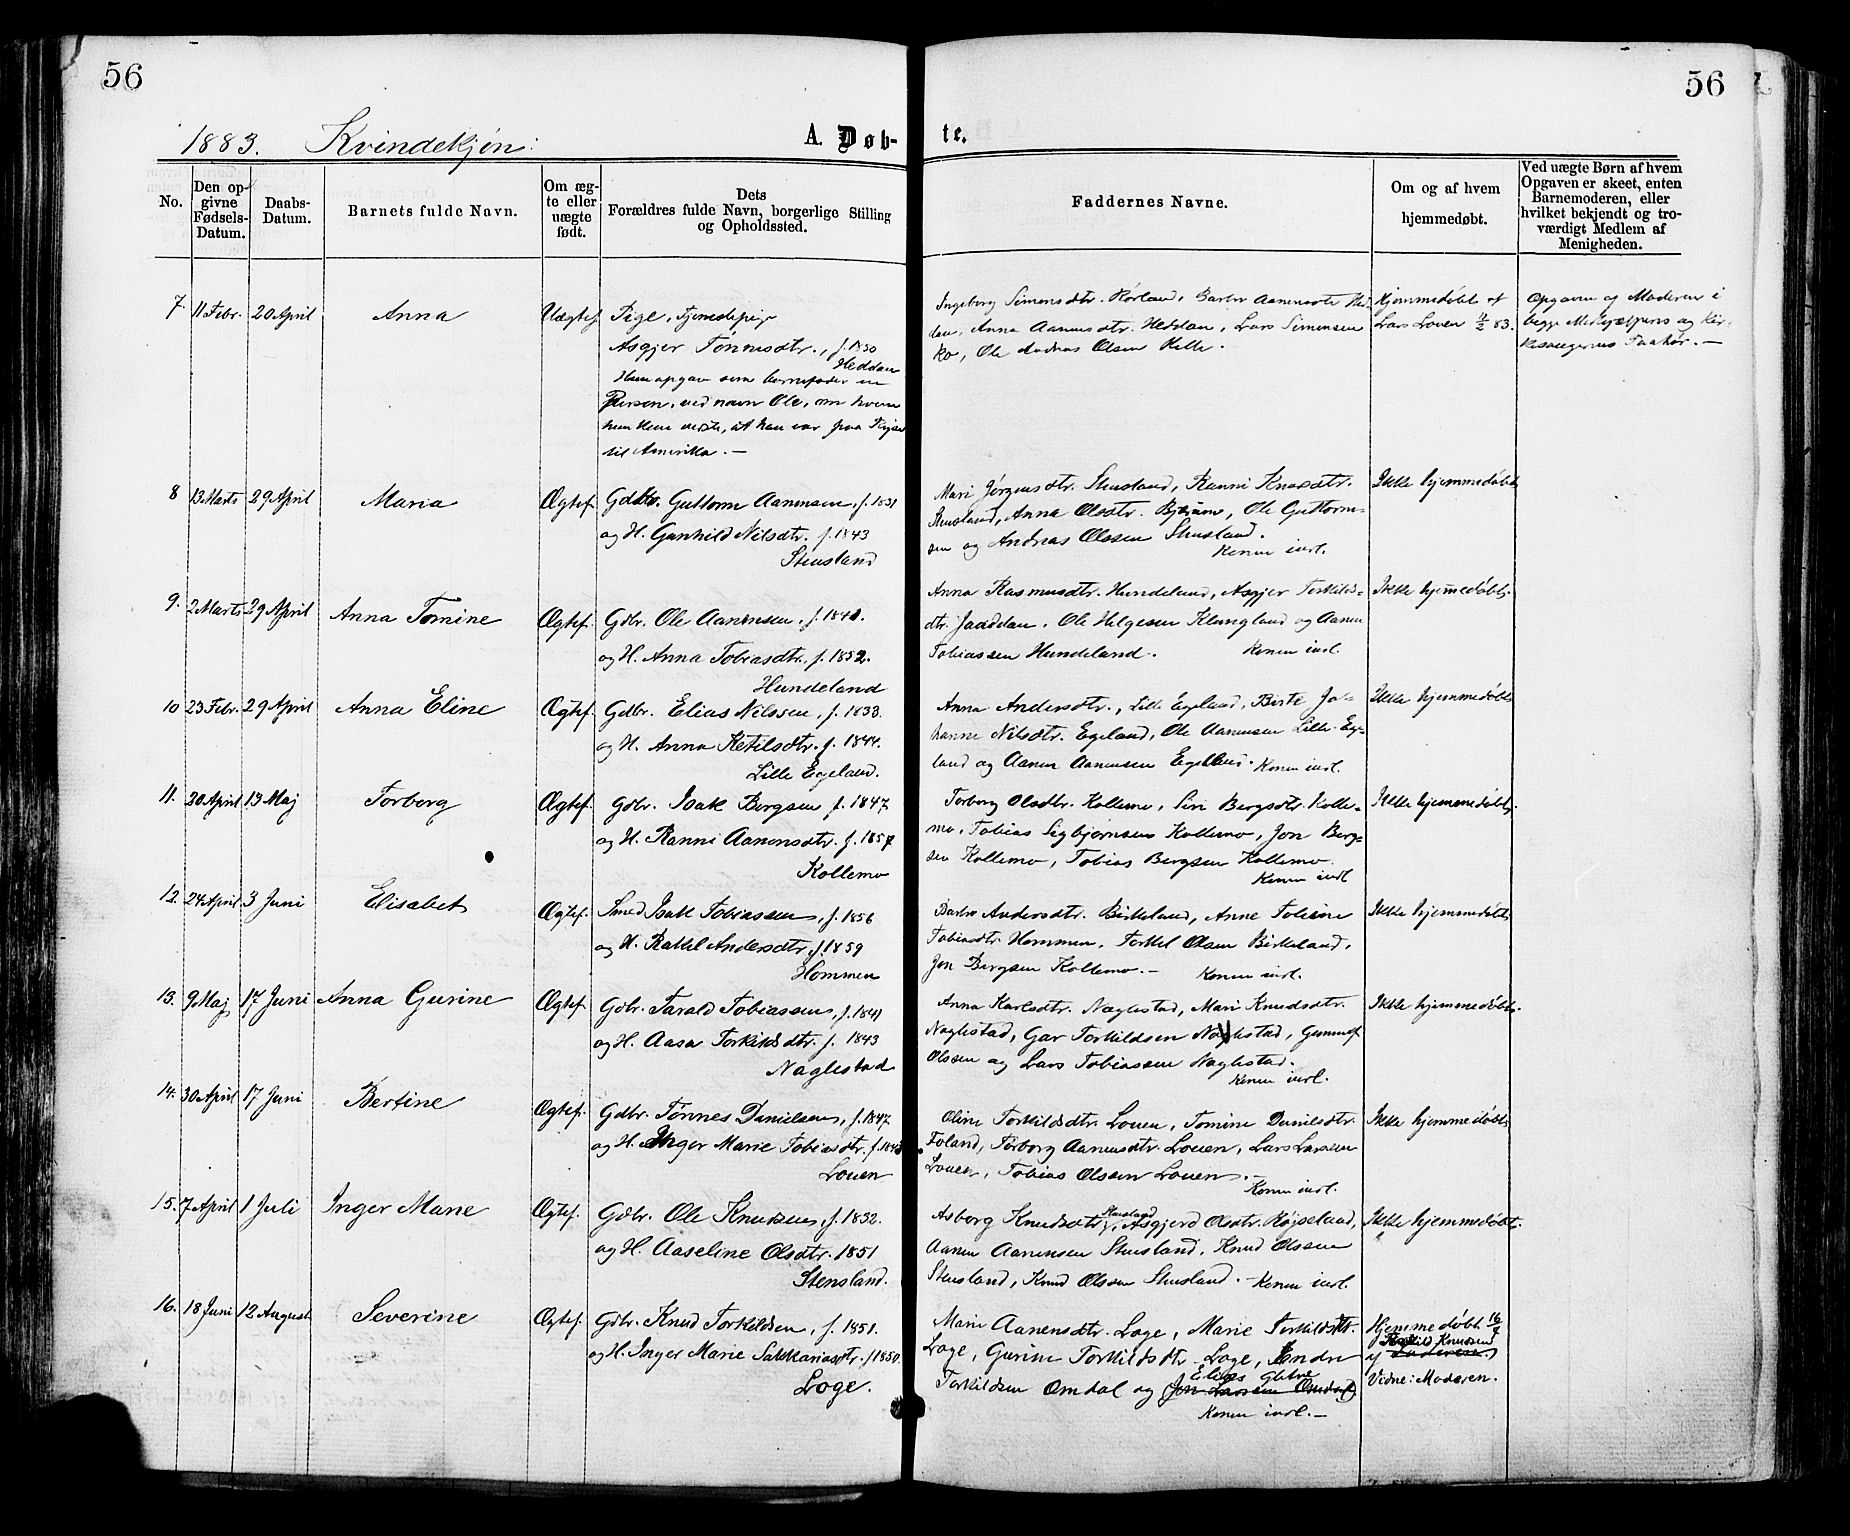 56
56
1883. Kvindekjøn:
A. Døb-
te.
No.
Den op-
givne
Fødsels-
Datum.
Daabs-
Datum.
Barnets fulde Navn.
Om æg-
te eller
uægte
født.
Dets
Forældres fulde Navn, borgerlige Stilling
og Opholdssted.
Faddernes Navne.
Om og af hvem
hjemmedøbt.
Ved uægte Børn af hvem
Opgaven er skeet, enten
Barnemoderen, eller
hvilket bekjendt og tro-
værdigt Medlem af
Menigheden.
7. 11 Febr. 20 April Anna Uægtef. Pige, Tjenestepige
Asgjer Tønnesdtr., f. 1850
Heddan
Hun opgav som barnefader en
Person, ved navn Ole, om hvem
hun kun vidste, at han var paa Rejse
til Amerika. —
Ingeborg Simensdtr. Hørland, Barbro Aanensdtr Hed-
dan, Anna Aanensdtr. Heddan, Lars Simensen
Ro, Ole Andreas Olsen Helle.
Hjemmedøbt af
Lars Louen 11/2 83.
Opgaven af Moderen i
begge Medhjælperes og Kir-
kesangerens Paahør. —
8 13 Marts 29 April Maria Ægtef. Gdbr. Guttorm Aanensen, f. 1831
og H. Gunhild Nilsdtr. f. 1843
Stensland
Mari Jørgensdtr. Stensland, Ranni Knudsdtr.
Stensland, Anna Olsdtr. Bjerum, Ole Guttorm-
sen og Andreas Olssen Stensland.
Konen indl.
Ikke hjemmedøbt.
9. 2 Marts 29 April Anna Tomine Ægtef. Gdbr. Ole Aanensen, f. 1841.
og H. Anna Tobiasdtr. f. 1852.
Hundeland
Anna Rasmusdtr. Hundeland, Asgjer Torkilds-
dtr. Jaaddan, Ole Helgesen Klungland og Aanen
Tobiassen Hundeland. Konen indl.
Ikke hjemmedøbt.
10 23 Febr. 29 April Anna Eline Ægtef. Gdbr. Elias Nilssen, f. 1833.
og H. Anna Ketilsdtr. f. 1844.
Lille Egeland.
Anna Andersdtr., Lille Egeland, Birte Jo-
hanne Nilsdtr. Egeland, Ole Aanensen Lille Ege-
land og Aanen Aanensen Egeland. Konen indl.
Ikke hjemmedøbt
11. 20 April 13 Maj Torborg Ægtef. Gdbr. Isak Bergsen f. 1847
og H. Ranni Aanensdtr. f. 1857
Kollemo
Torborg Olsdtr. Kollemo, Siri Bergsdtr. Kolle-
mo, Tobias Sigbjørnsen Kollemo, Jon Berg-
sen Kollemo, Tobias Bergsen Kollemo.
Konen indl
Ikke hjemmedøbt.
12. 24 April 3 Juni Elisabet Ægtef. Smed Isak Tobiassen, f. 1856
og H. Rakel Andersdtr. f. 1859
Hommen
Barbro Andersdtr. Birkeland, Anne Toline
Tobiasdtr. Hommen, Torkel Olsen Birkeland,
Jon Bergsen Kollemo. — Konen indl.
Ikke hjemmedøbt
13. 9 Maj 17 Juni Anna Gurine Ægtef. Gdbr. Tarald Tobiassen, f. 1841
og H. Aasa Torkildsdtr. f. 1843
Naglestad
Anna Karlsdtr. Naglestad, Mari Knudsdtr.
Naglestad, Gar Torkildsen Naglestad, Gummef
Olssen og Lars Tobiassen Naglestad.
Konen indl.
Ikke hjemmedøbt.
14. 30 April 17 Juni Bertine Ægtef. Gdbr. Tønnes Danielsen, f. 1847
og H. Inger Marie Tobiasdtr. f. 1843
Louen
Oline Torkildsdtr. Louen, Tomine Danielsdtr.
Foland, Torborg Aanensdtr. Louen, Lars Larssen
Louen, Tobias Olssen Louen. —
Konen indl.
Ikke hjemmedøbt
15. 7 April 1 Juli Inger Marie Ægtef. Gdbr. Ole Knudsen, f. 1852.
og H. Aaseline Olsdtr. 1851
Stensland.
Asborg Knudsdtr. Stensland, Asgjerd Olsdtr. Røjseland,
Aanen Aanensen Stensland, Knud Olssen
Stensland, Knud Olssen Stensland. — Konen indl.
Ikke hjemmedøbt.
16. 18 Juni 12 August Severine Ægtef. Gdbr. Knud Torkildsen, f. 1851.
og H. Inger Marie Sakkariasdtr. f. 1850.
Loge.
Marie Aanensdtr. Loge, Marie Torkildsdtr.
Loge, Gurine Torkildsdtr. Loge, Endre
Torkildsen Omdal og Jon Larssen Omdal
Konen indl. —
Hjemmedøbt
Torkild Knudsen
af Faderen
Vidne: Moderen.